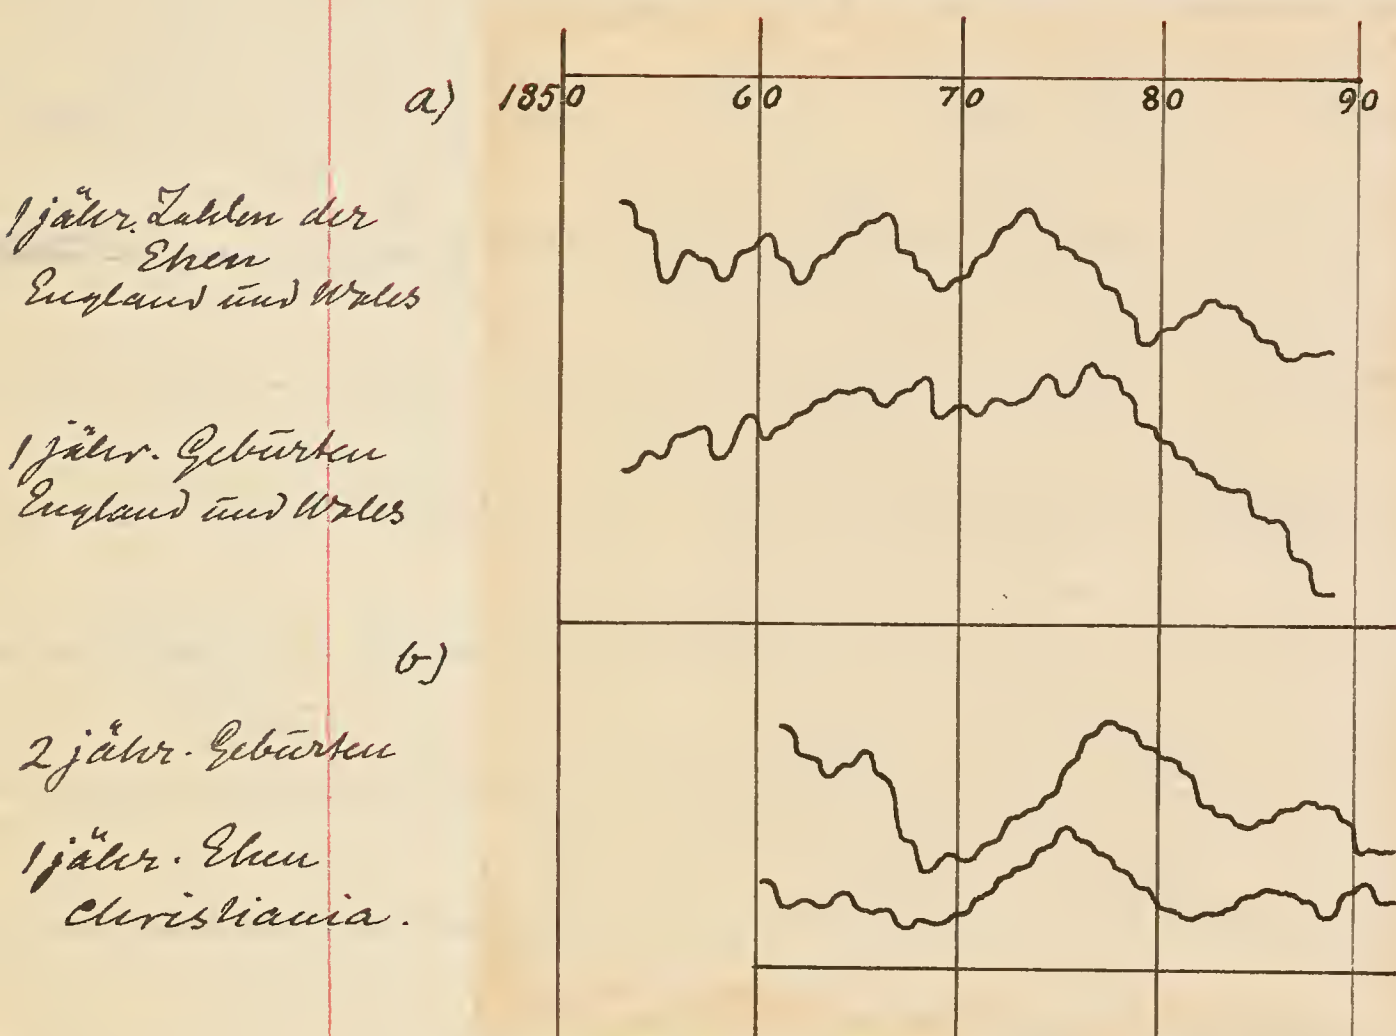 a) 1850 60 70 80 90
1 jähr. Zahlen der
Ehen
England und Wales
1 jähr. Geburten
England und Wales
b)
2 jähr. Geburten
1 jähr. Ehen
Christiania.